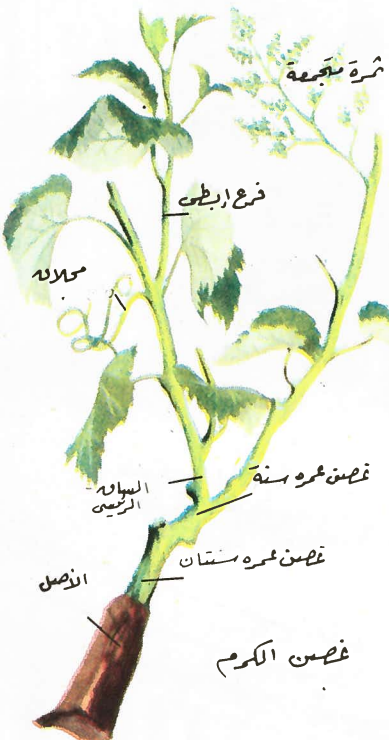 ثمرة متجمعة
فرع إبطي
محلاق
غصن عمره سنة
الساق
الرئيسي
غصن عمره سنتان
الأصل
غصن الكرم